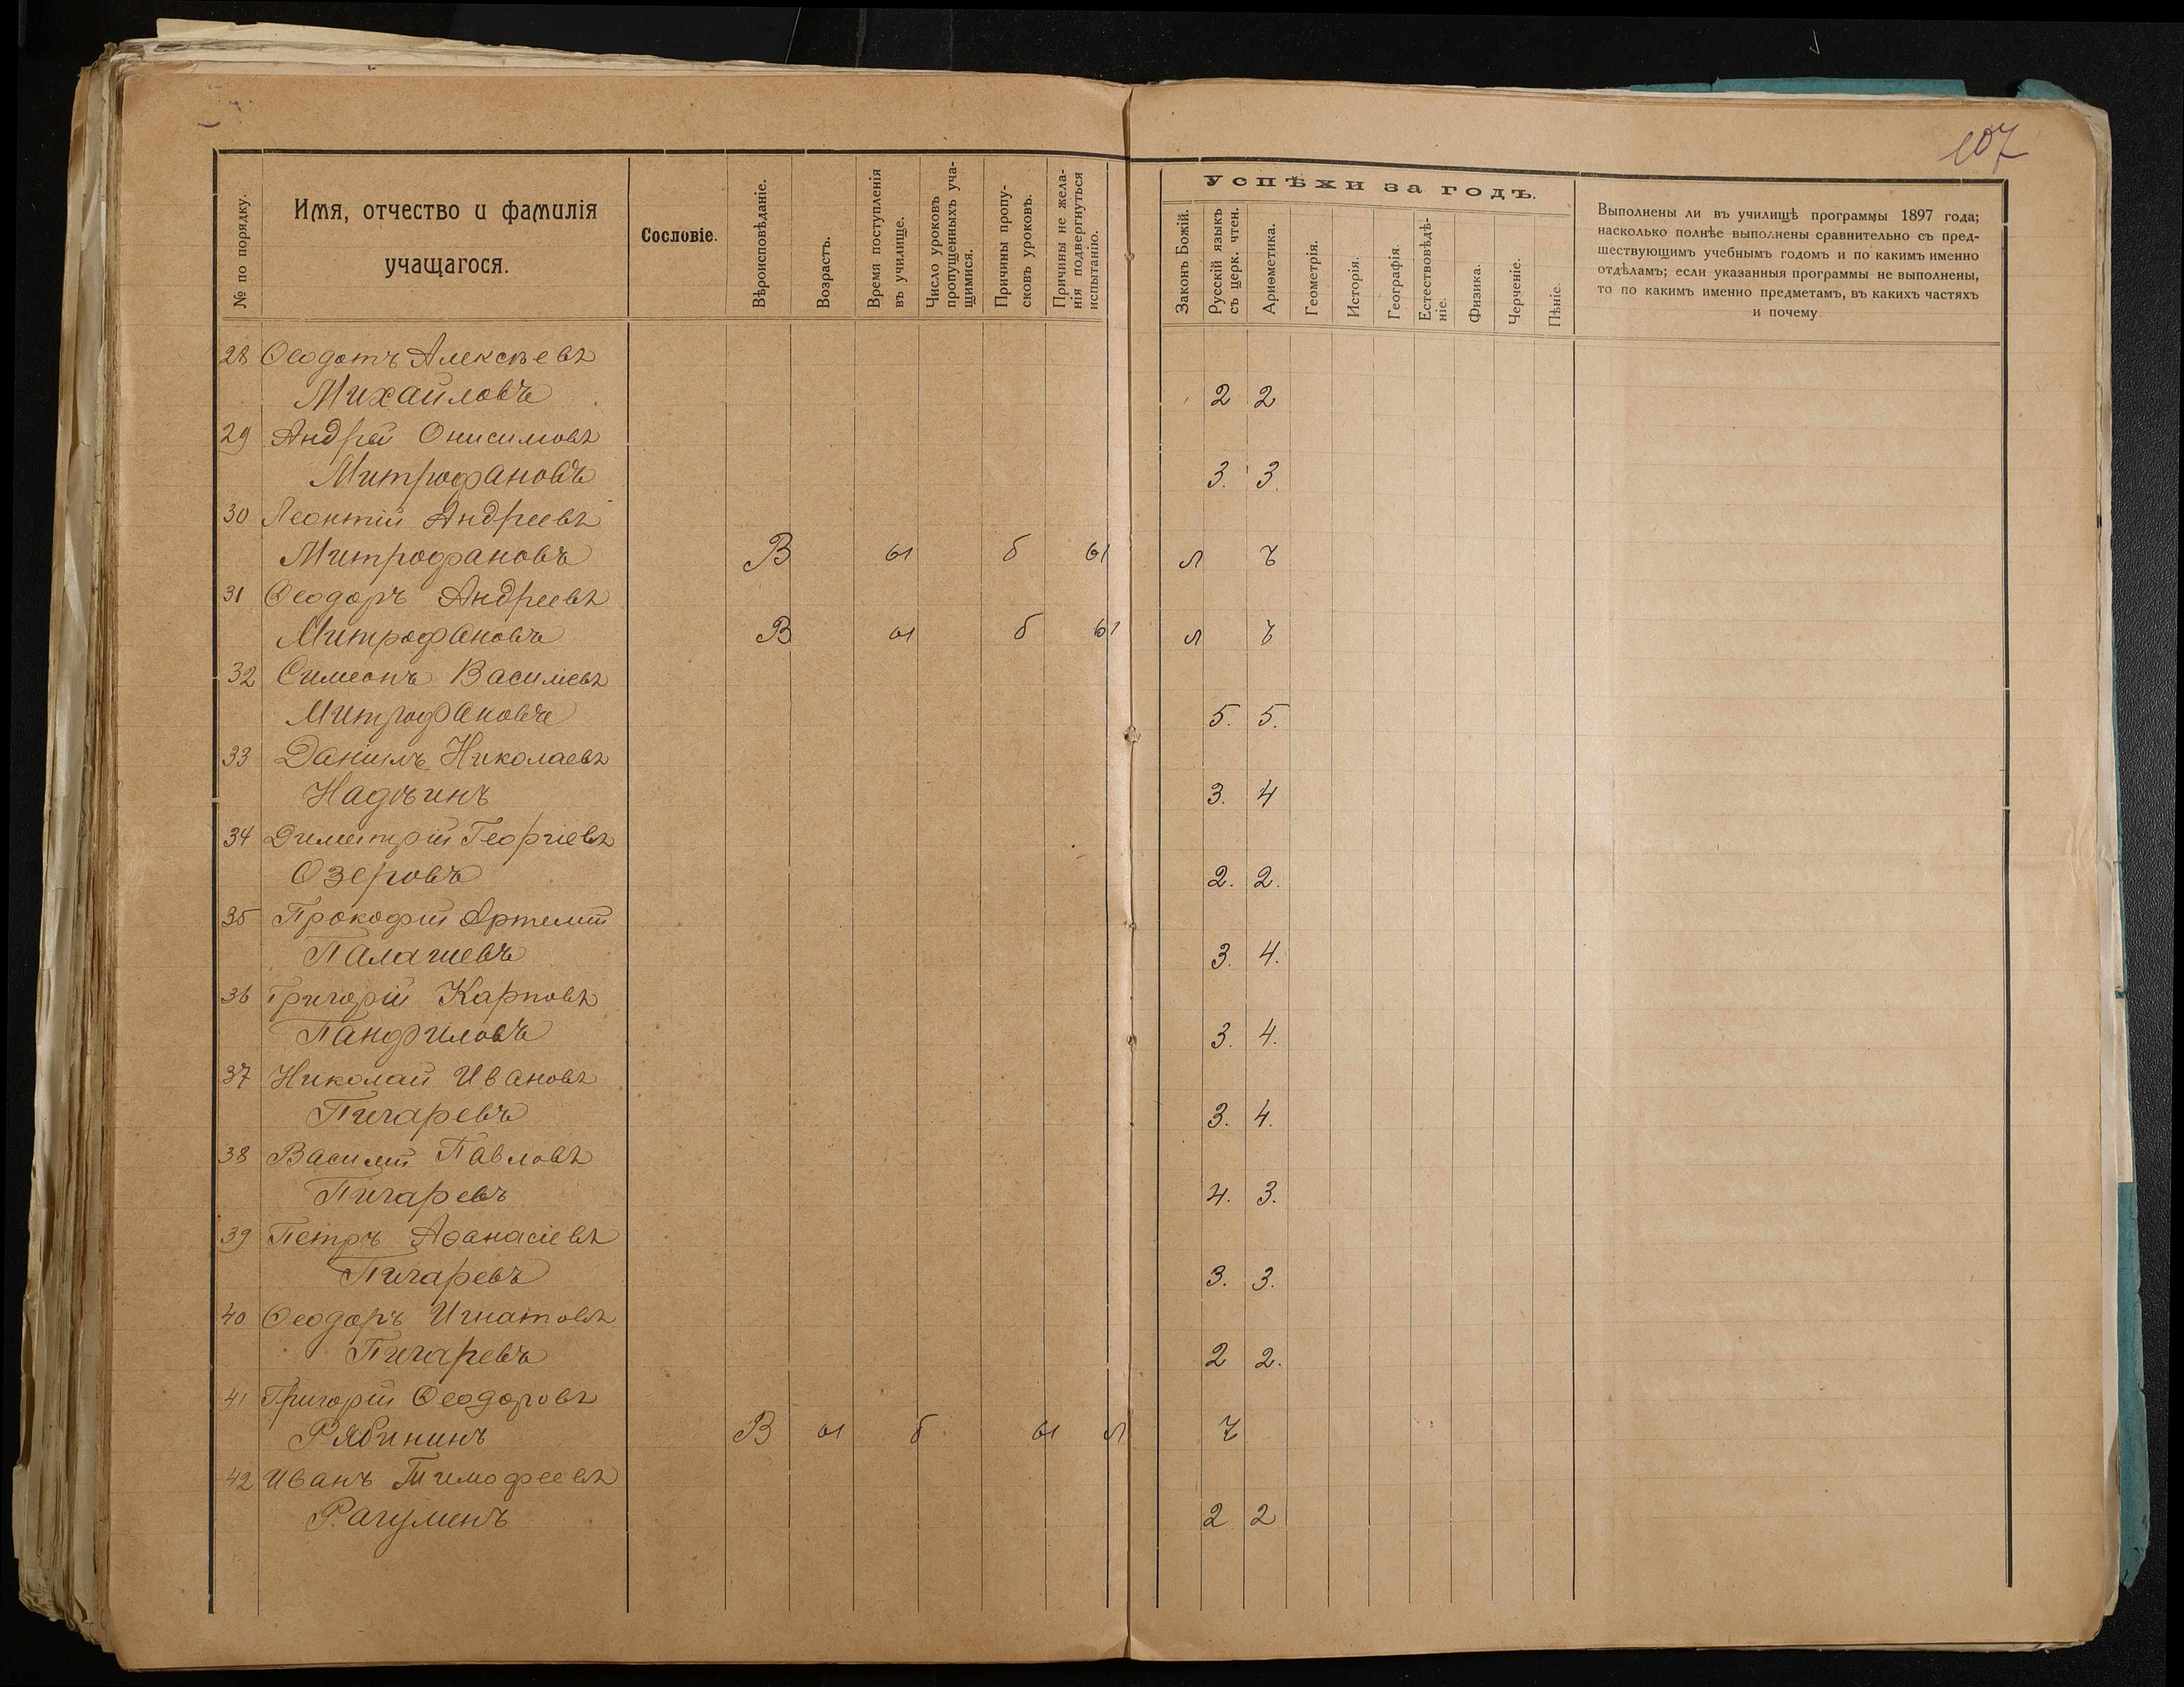 107
№ по порядку.
Имя, отчество и фамилія
учащагося.
Сословіе.
Вѣроисповѣданіе.
Возрастъ.
Время поступленія
въ училище.
Число уроковъ
пропущенныхъ уча-
щимися.
Причины пропу-
сковъ уроковъ.
Причины не жела-
нія подвергнуться
испытанію.
Успѣхи за годъ.
Законъ Божій.
Русскій языкъ
съ церк. чтен.
Ариѳметика.
Геометрія.
Исторія.
Географія.
Естествовѣдѣ-
ніе.
Физика.
Черченіе.
Пѣніе.
Выполнены ли въ училищѣ программы 1897 года;
насколько полнѣе выполнены сравнительно съ пред-
шествующимъ учебнымъ годомъ и по какимъ именно
отдѣламъ; если указанныя программы не выполнены,
то по какимъ именно предметамъ, въ какихъ частяхъ
и почему
28 Ѳеодотъ Алексѣевъ
Михайловъ 2 2
29 Андрей Онисимовъ
Митрофановъ 3. 3.
30 Леонтій Андреевъ
Митрофановъ В ы б ы л ъ
31 Ѳеодоръ Андреевъ
Митрофановъ В ы б ы л ъ
32 Симеонъ Василіевъ
Митрофановъ 5. 5.
33 Даніилъ Николаевъ
Надѣинъ 3. 4
34 Димитрій Георгіевъ
Озеровъ 2. 2.
35 Прокофій Артемій
Палашевъ 3. 4.
36 Григорій Карповъ
Панфиловъ 3. 4.
37 Николай Ивановъ
Пичаревъ 3. 4.
38 Василій Павловъ
Пичаревъ 4. 3.
39 Петръ Аѳанасіевъ
Пичаревъ 3. 3.
40 Ѳеодоръ Игнатовъ
Пичаревъ 2 2.
41 Григорій Ѳеодоровъ
Рябининъ В ы б ы л ъ
42 Иванъ Тимофеевъ
2 2